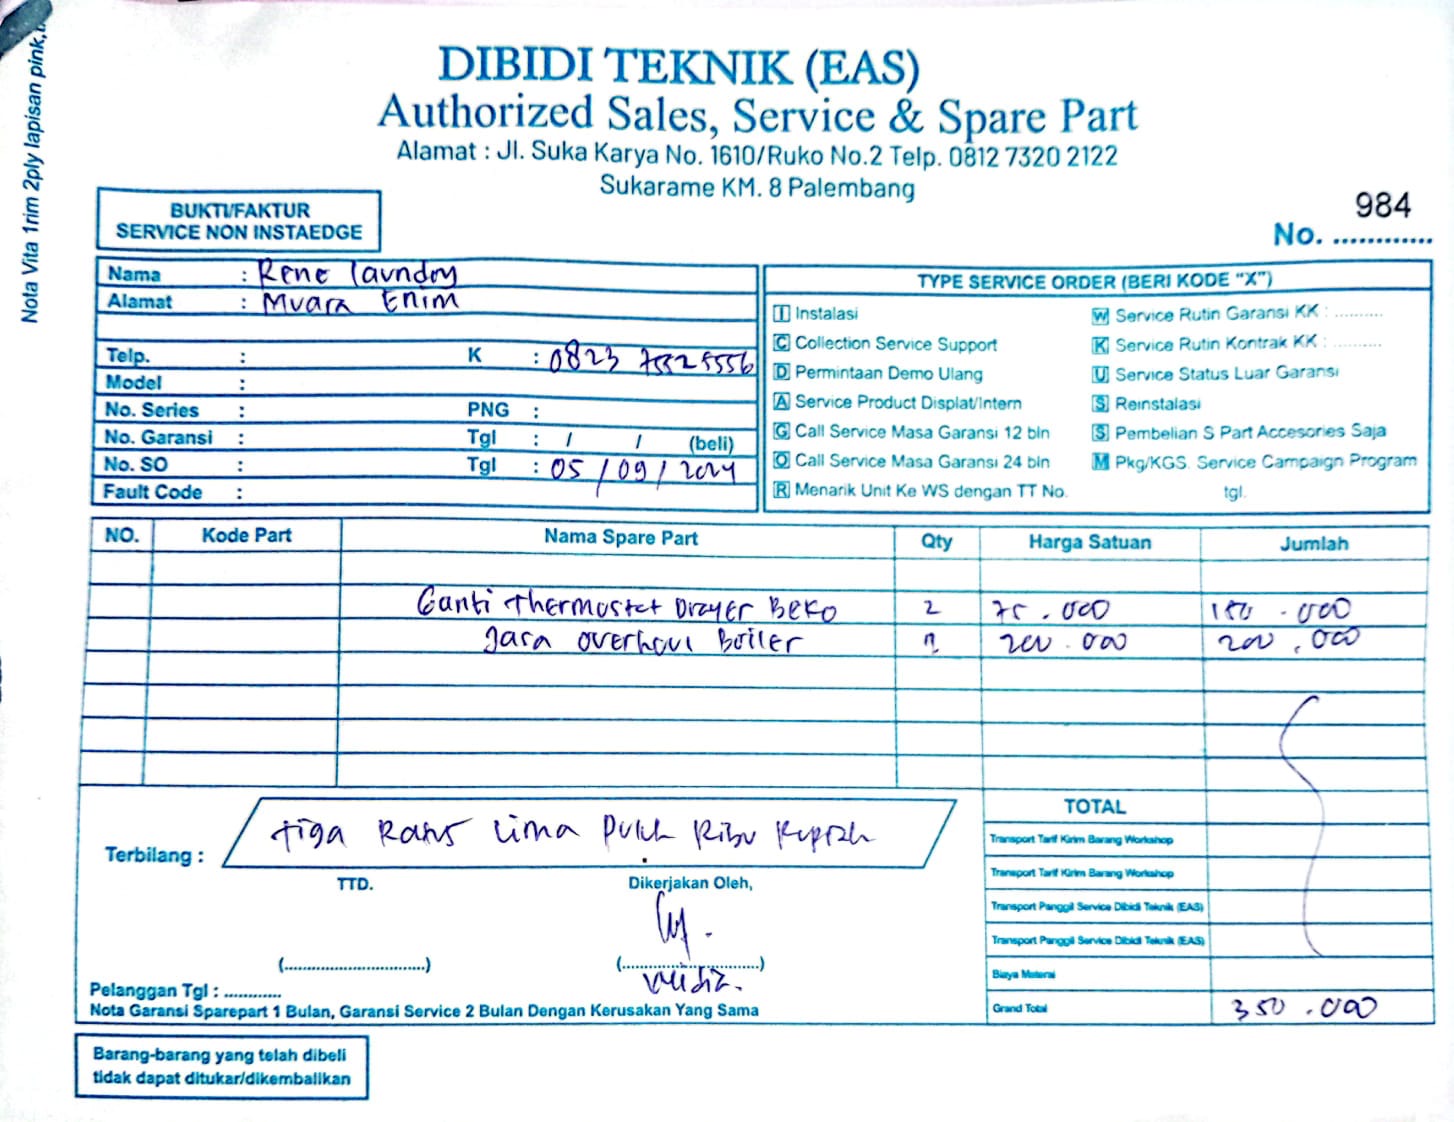 Nota Vita 1rim 2ply lapisan pink,
DIBIDI TEKNIK (EAS)
Authorized Sales, Service & Spare Part
Alamat : Jl. Suka Karya No. 1610/Ruko No.2 Telp. 0812 7320 2122
Sukarame KM. 8 Palembang
BUKTI/FAKTUR
SERVICE NON INSTAEDGE
984
No. ............
Nama : Rene laundry
Alamat : Muara Enim
Telp. : K : 0823 75525556
Model :
No. Series : PNG :
No. Garansi : Tgl : / / (beli)
No. SO : Tgl : 05/09/2024
Fault Code :
TYPE SERVICE ORDER (BERI KODE "X")
I Instalasi
C Collection Service Support
D Permintaan Demo Ulang
A Service Product Displat/Intern
G Call Service Masa Garansi 12 bln
O Call Service Masa Garansi 24 bln
R Menarik Unit Ke WS dengan TT No.
W Service Rutin Garansi KK : ..........
K Service Rutin Kontrak KK : ..........
U Service Status Luar Garansi
S Reinstalasi
S Pembelian S Part Accesories Saja
M Pkg/KGS. Service Campaign Program
tgl.
NO. Kode Part Nama Spare Part Qty Harga Satuan Jumlah
Ganti Thermostat Drayer Beko 2 75.000 150.000
Jasa overhoul Boiler 200.000 200.000
Terbilang : tiga Ratus lima Puluh Ribu Rupiah
TTD.
Dikerjakan Oleh,
(..............................)
(..............................)
Pelanggan Tgl : ............
Nota Garansi Sparepart 1 Bulan, Garansi Service 2 Bulan Dengan Kerusakan Yang Sama
TOTAL
Transport Tarif Kirim Barang Workshop
Transport Tarif Kirim Barang Workshop
Transport Panggil Service Dibidi Teknik (EAS)
Transport Panggil Service Dibidi Teknik (EAS)
Biaya Materai
Grand Total 350.000
Barang-barang yang telah dibeli
tidak dapat ditukar/dikembalikan